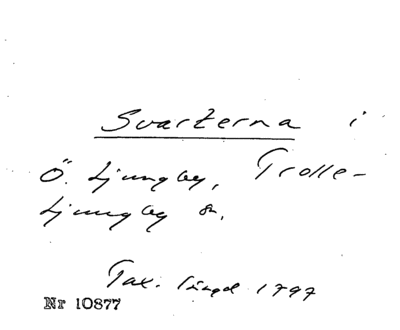 Svarterna i
Ö. Ljungby, Trolle-
Ljungby sn.
Tax. längd 1797
Nr 10877